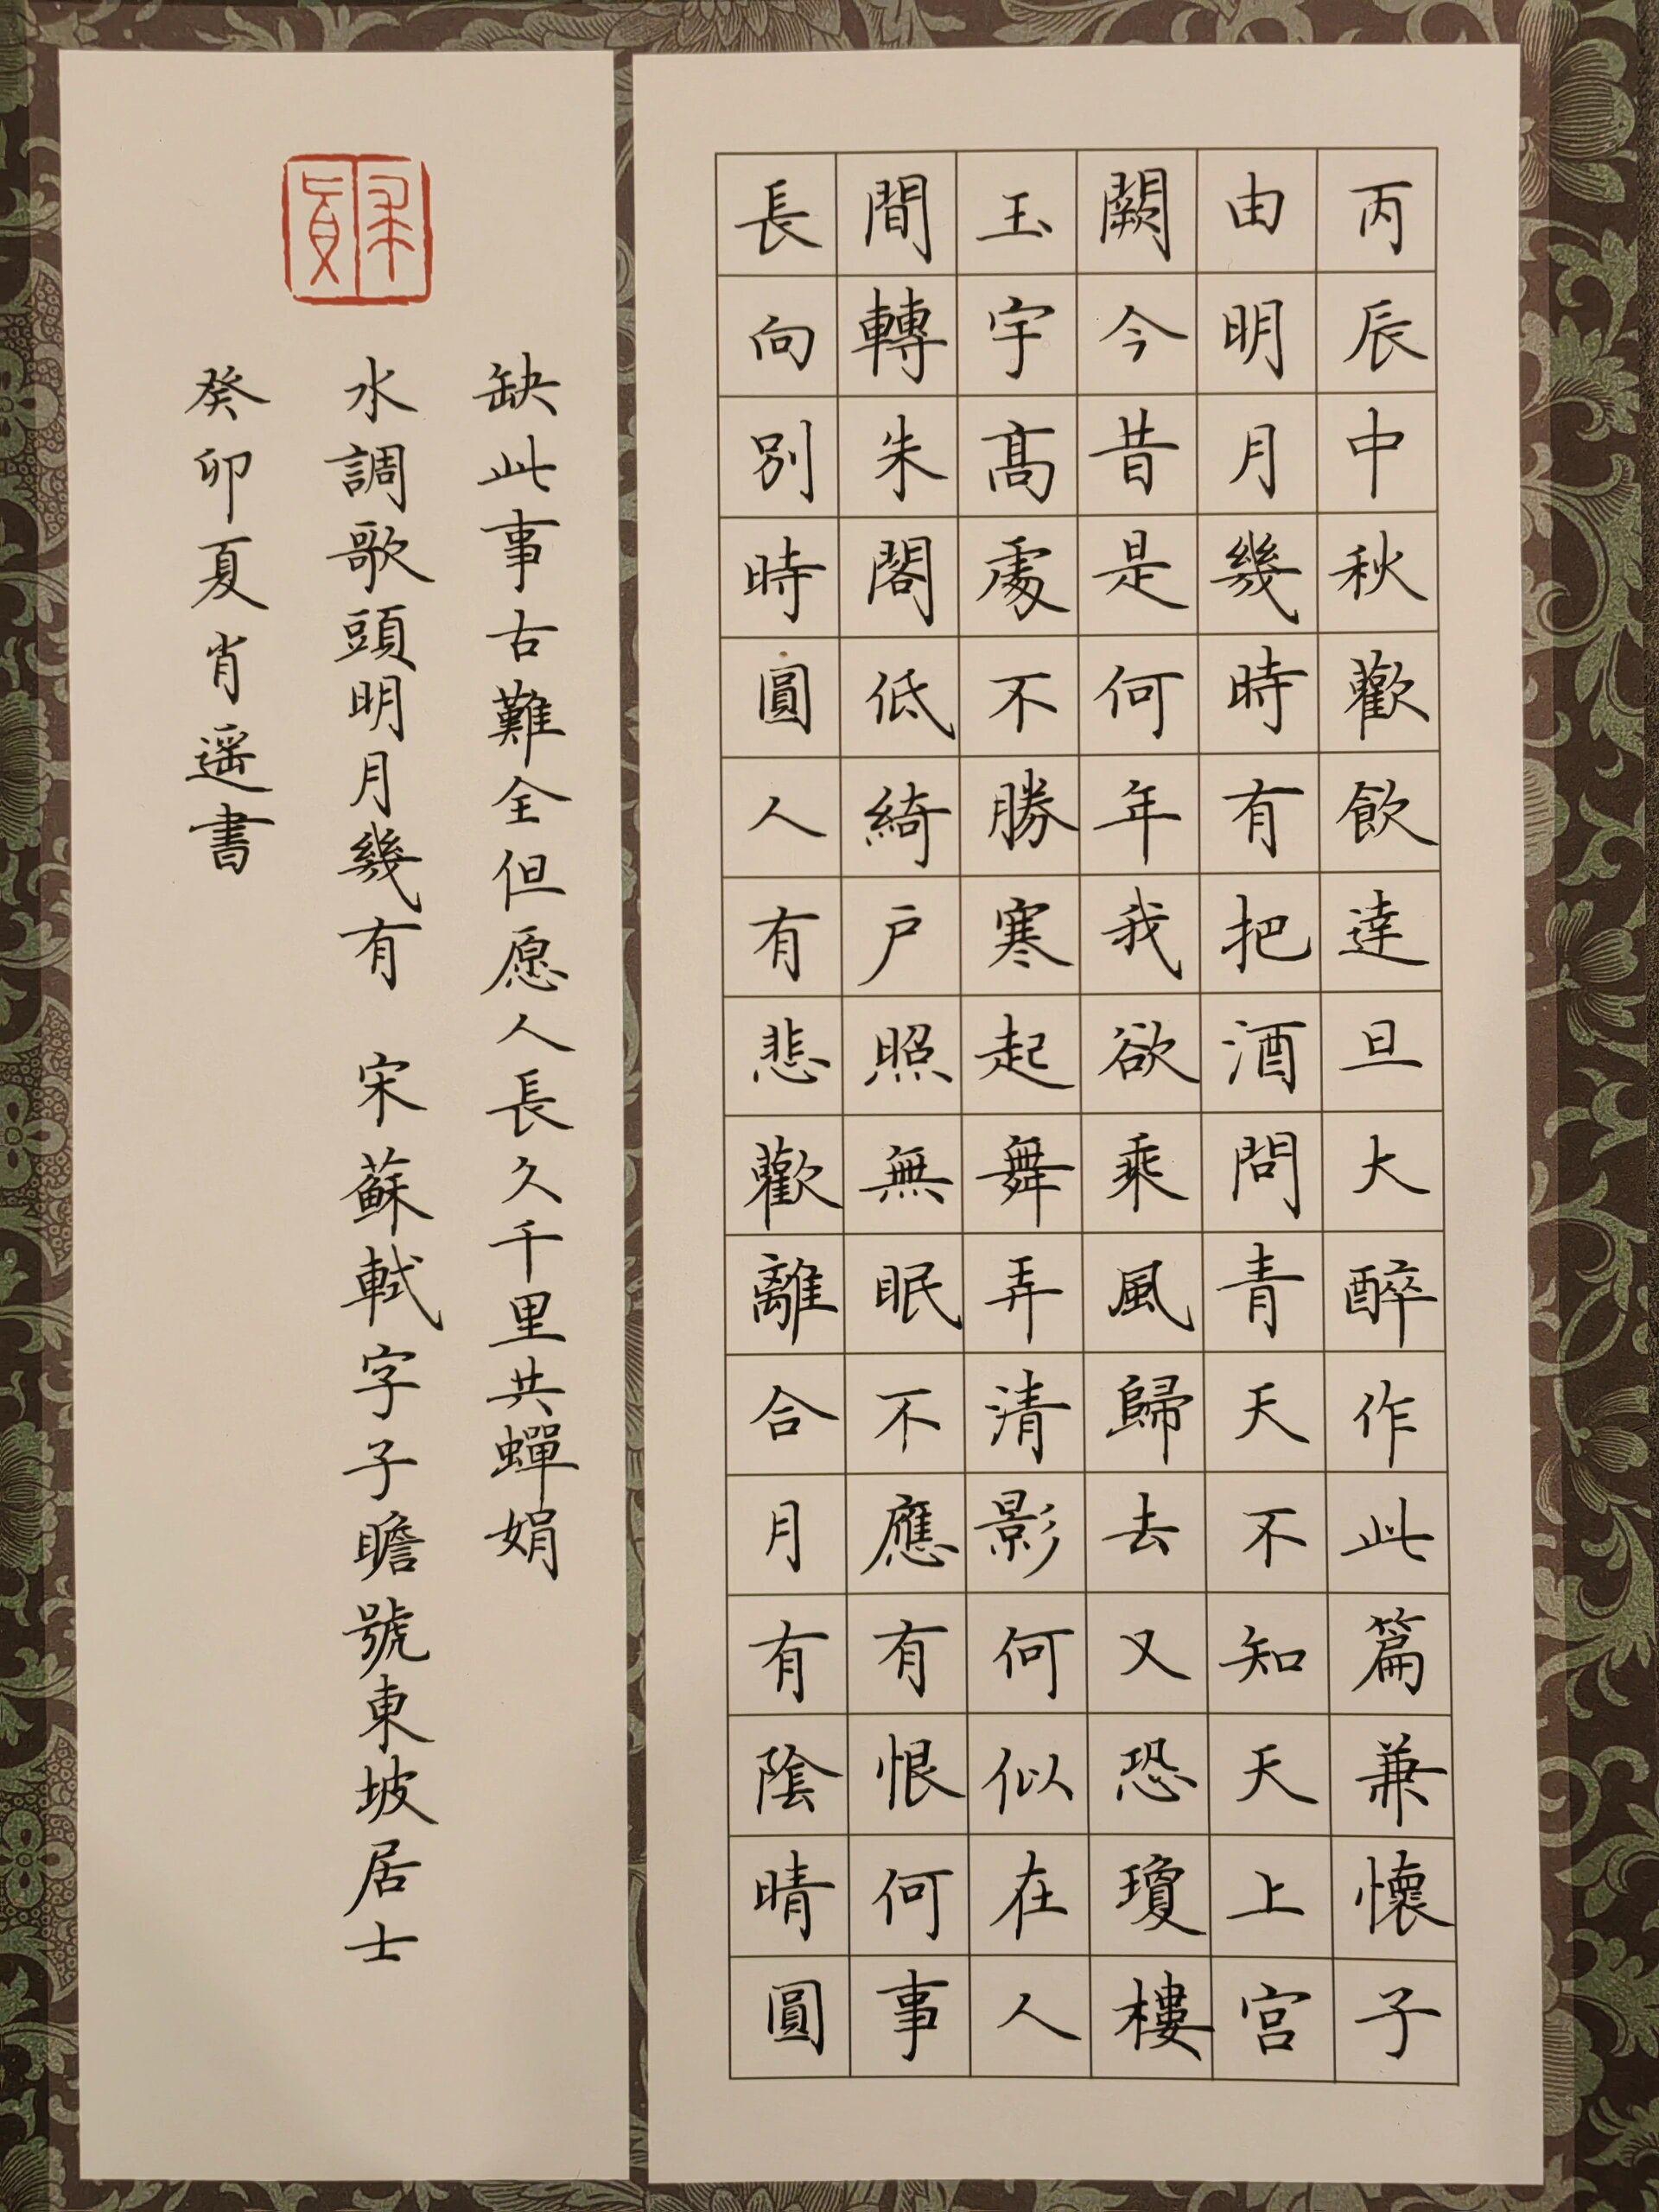 丙辰中秋歡飲達旦大醉作此篇兼懷子
由明月幾時有把酒問青天不知天上宮
闕今昔是何年我欲乘風歸去又恐瓊樓
玉宇高處不勝寒起舞弄清影何似在人
間轉朱閣低綺户照無眠不應有恨何事
長向别時圓人有悲歡離合月有陰晴圓
缺此事古難全但愿人長久千里共蟬娟
水調歌頭明月幾有 宋蘇軾字子瞻號東坡居士
癸卯夏肖遥書